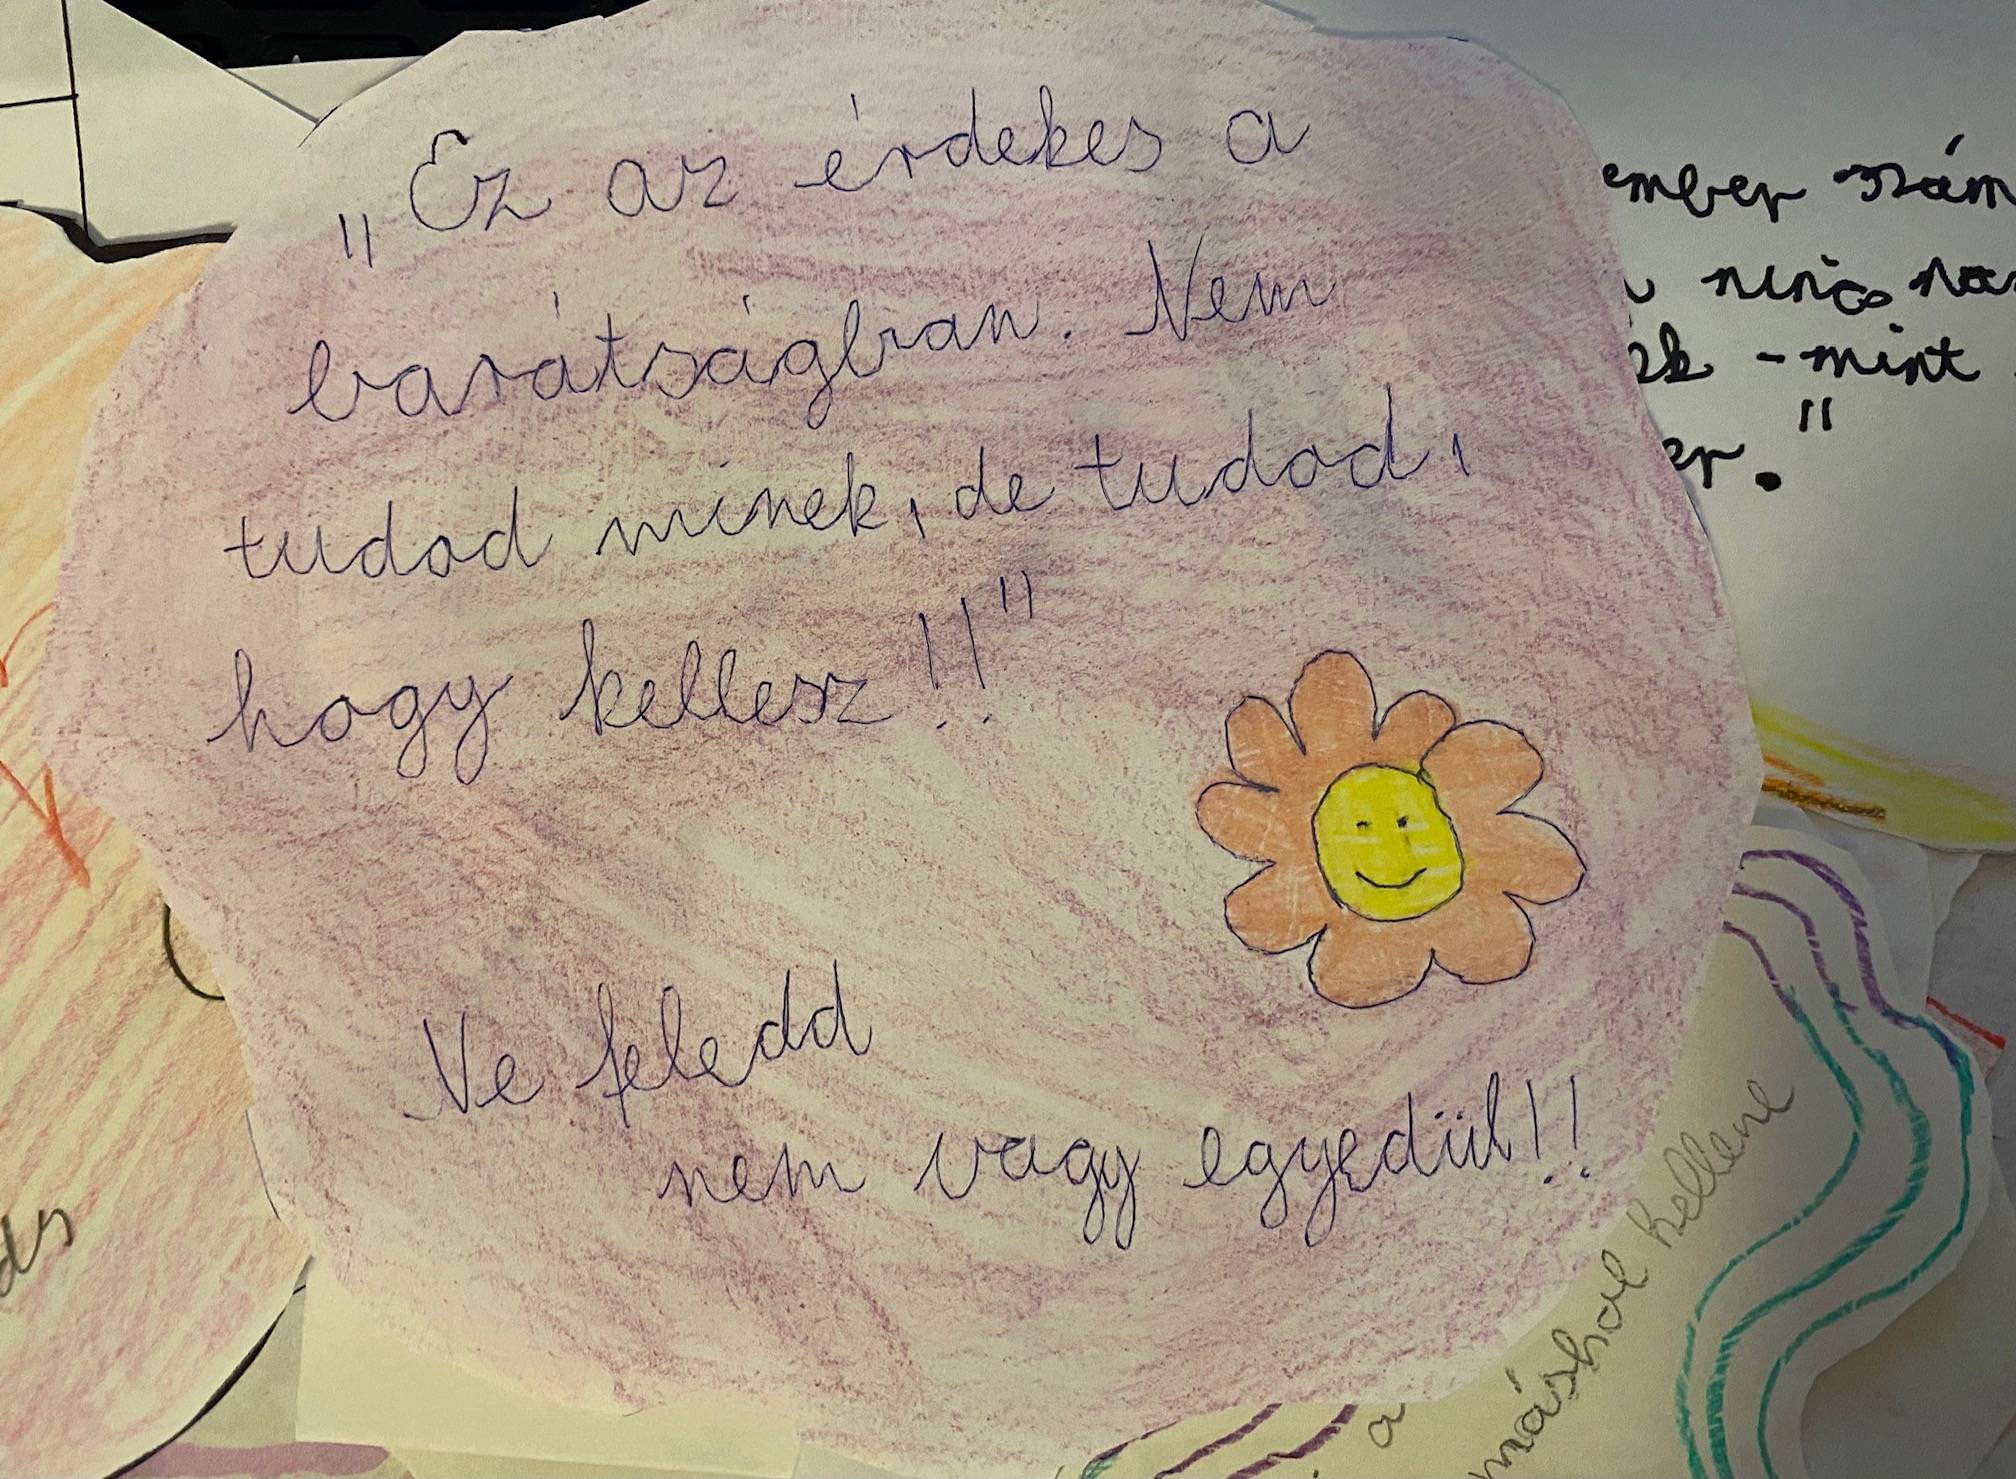 „Ez az érdekes a
barátságban. Nem
tudod minek, de tudod,
hogy kellesz!!"
Ne feledd
nem vagy egyedül!!
ember szám
nincs
- mint
"
máshol kellene
a